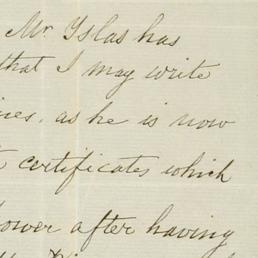 Mr. Yslas has
that I may write
as he is now
certificates which
after having